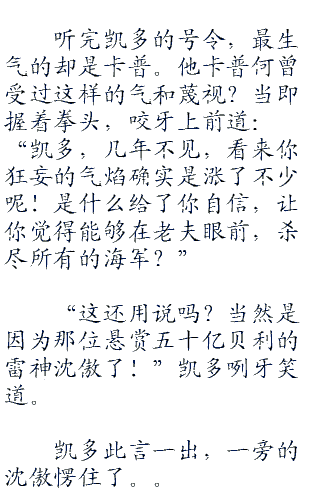 听完凯多的号令，最生
气的却是卡普。他卡普何曾
受过这样的气和蔑视？当即
握着拳头，咬牙上前道：
“凯多，几年不见，看来你
狂妄的气焰确实是涨了不少
呢！是什么给了你自信，让
你觉得能够在老夫眼前，杀
尽所有的海军？”
“这还用说吗？当然是
因为那位悬赏五十亿贝利的
雷神沈傲了！”凯多咧牙笑
道。
凯多此言一出，一旁的
沈傲愣住了。。